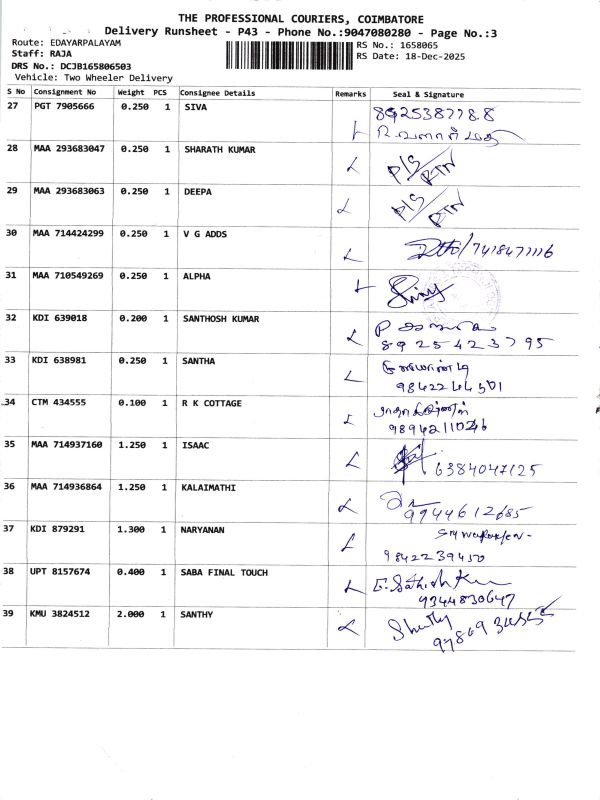 THE PROFESSIONAL COURIERS, COIMBATORE
Delivery Runsheet - P43 - Phone No.:9047080280 - Page No.:3
Route: EDAYARPALAYAM
Staff: RAJA
DRS No.: DCJB165806503
Vehicle: Two Wheeler Delivery
RS No.: 1658065
RS Date: 18-Dec-2025
S No Consignment No Weight PCS Consignee Details Remarks Seal & Signature
27 PGT 7905666 0.250 1 SIVA
8925387788
28 MAA 293683047 0.250 1 SHARATH KUMAR P/S RTN
29 MAA 293683063 0.250 1 DEEPA P/S RTN
30 MAA 714424299 0.250 1 V G ADDS /7418471116
31 MAA 710549269 0.250 1 ALPHA
32 KDI 639018 0.200 1 SANTHOSH KUMAR
89254 23795
33 KDI 638981 0.250 1 SANTHA
9842244501
34 CTM 434555 0.100 1 R K COTTAGE
9894211026
35 MAA 714937160 1.250 1 ISAAC 6384047125
36 MAA 714936864 1.250 1 KALAIMATHI
9944612685
37 KDI 879291 1.300 1 NARYANAN
9842239450
38 UPT 8157674 0.400 1 SABA FINAL TOUCH E. Sathish Ku
9344830647
39 KMU 3824512 2.000 1 SANTHY Shanthy